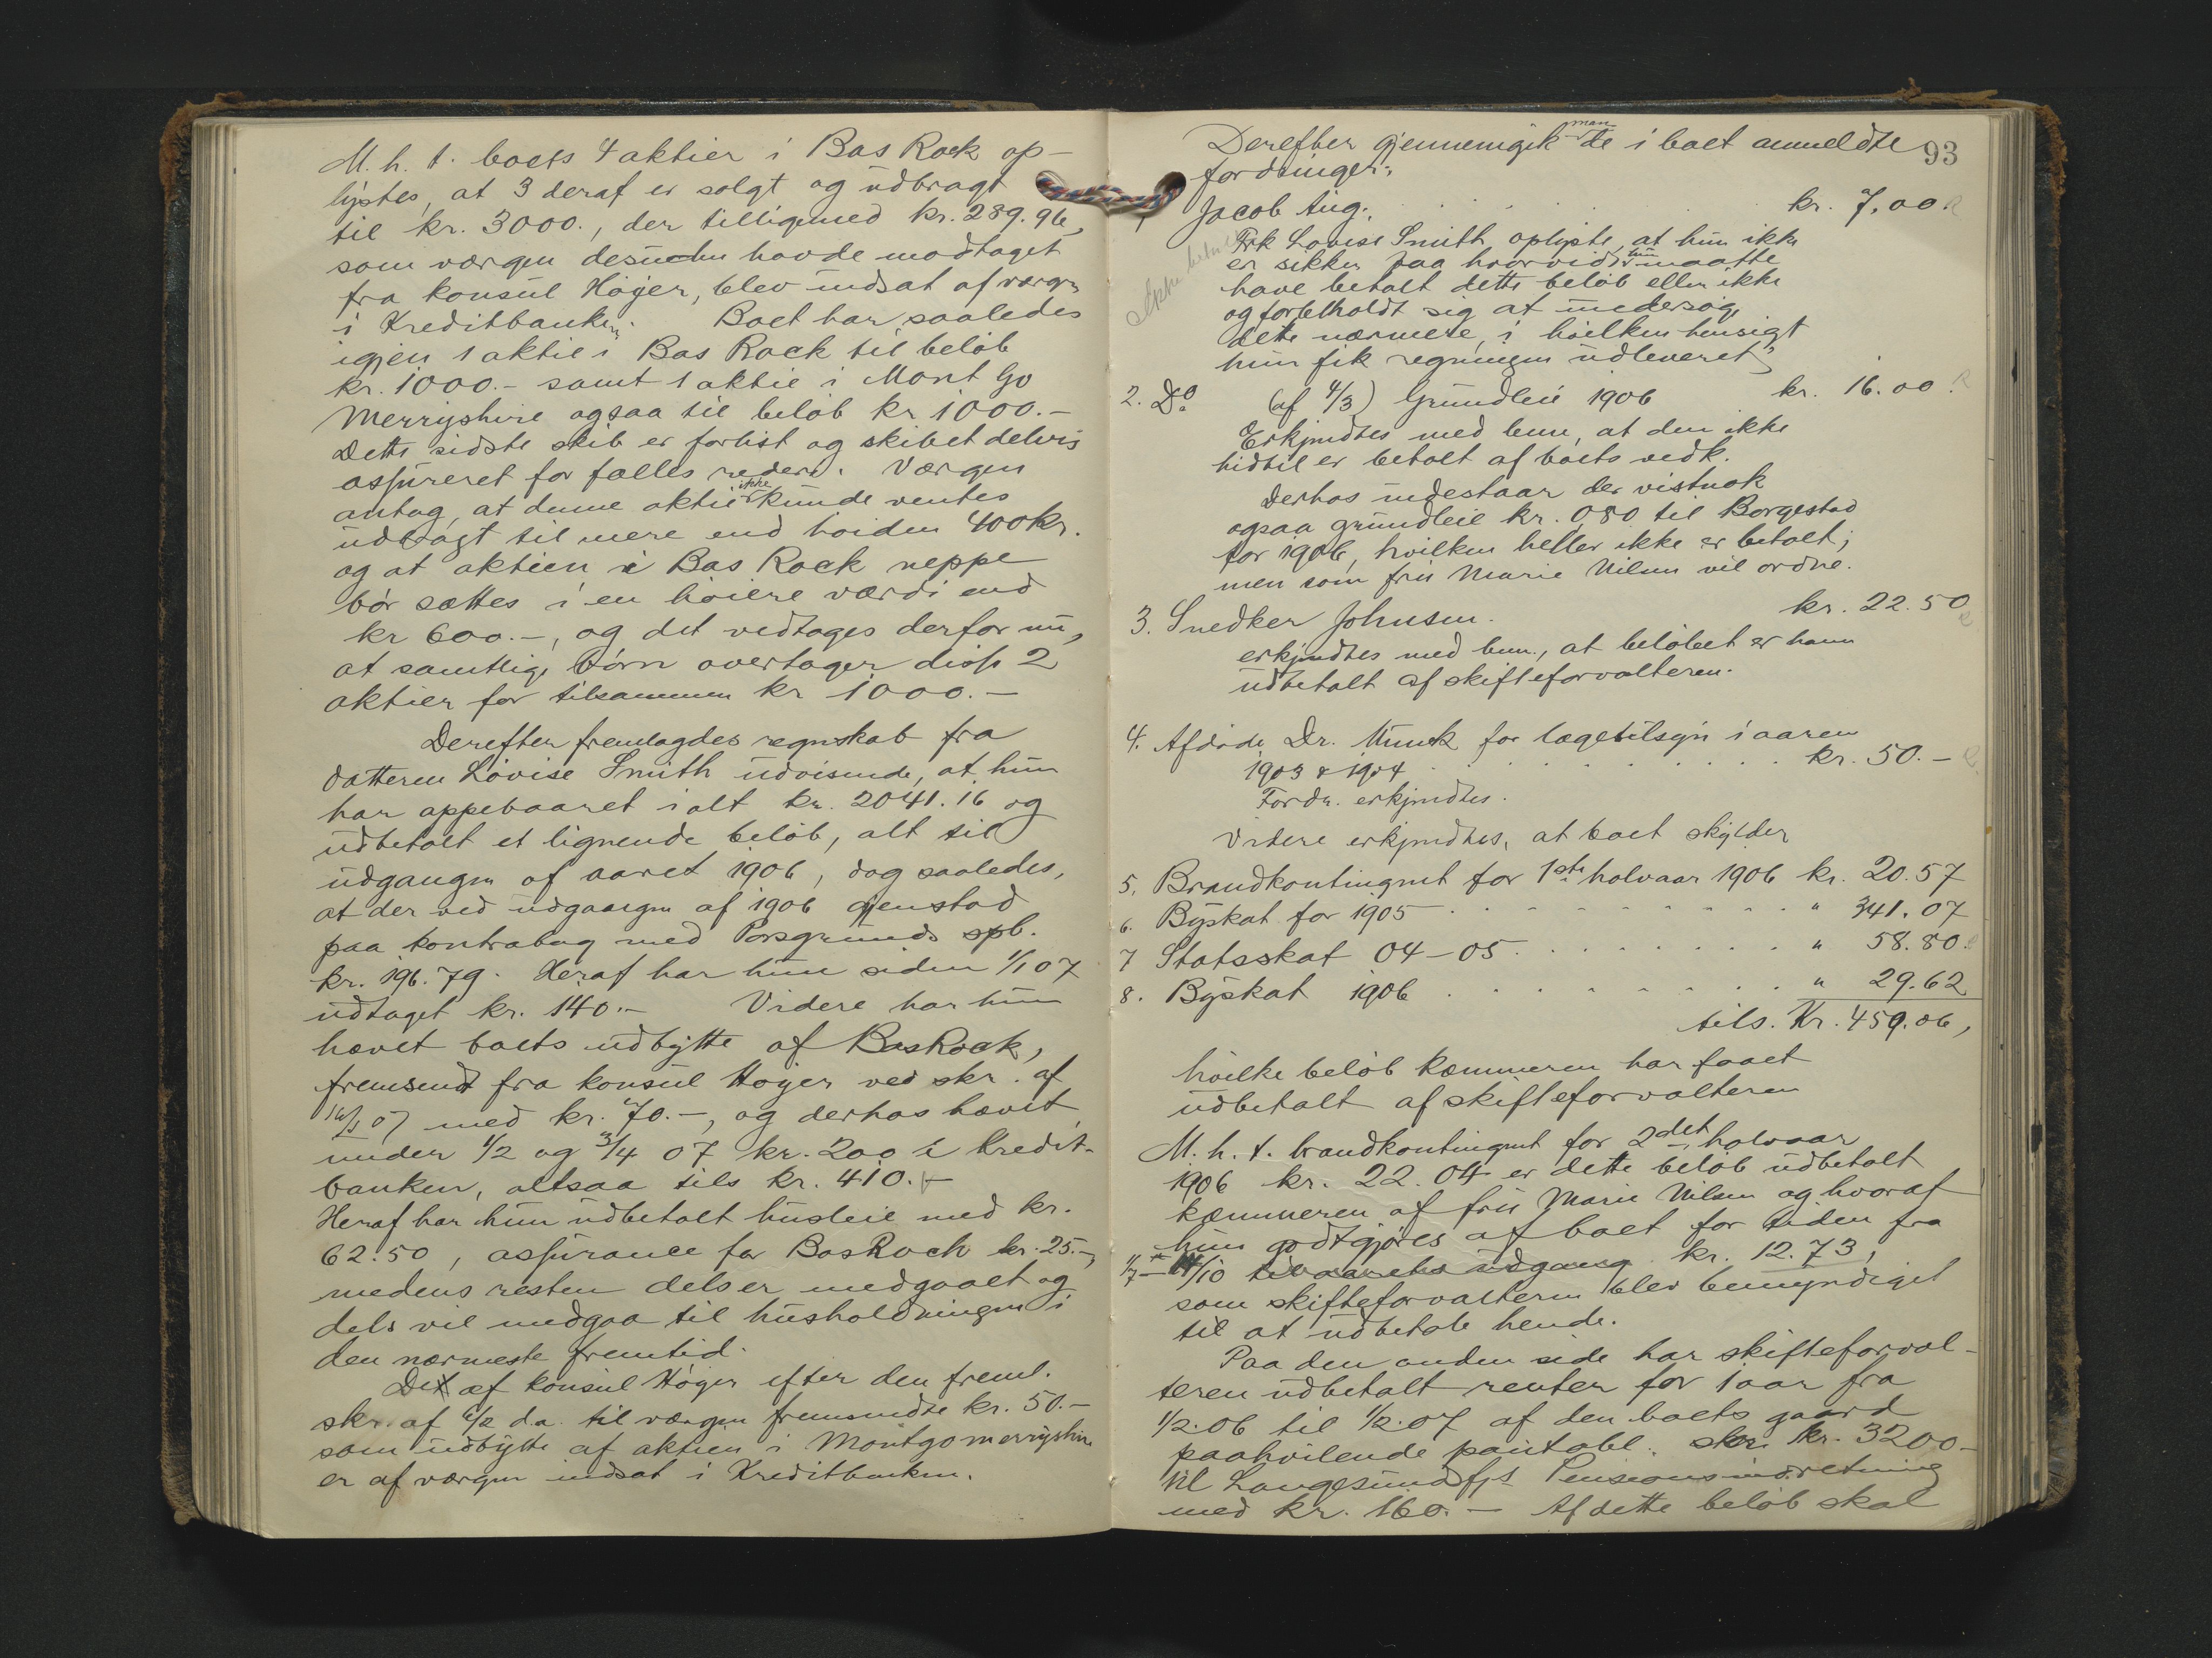 M. h. t. boets 4 aktier i Bas Rock op-
lystes, at 3 deraf er solgt og udbragt
til kr. 3000., der tilligemed kr. 289.96,
som værgen desuden havde modtaget
fra konsul Høyer, blev indsat af værgen
i Kreditbanken. Boet har saaledes
igjen 1 aktie i Bas Rock til beløb
kr. 1000.- samt 1 aktie i Mont Go
Merryshire ogsaa til beløb kr 1000.-
Dette sidste skib er forlist og skibet delvis
assureret for fælles rederi. Værgen
antog, at denne aktie ikke kunde ventes
udbragt til mere end høiden 400 kr.
og at aktien i Bas Rock neppe
bør sættes i en høiere værdi end
kr 600.-, og det vedtoges derfor nu,
at samtlige børn overtager disse 2
aktier for tilsammen kr 1000.-
Derefter fremlagdes regnskab fra
datteren Lovise Smith udvisende, at hun
har oppebaaret i alt kr. 2041.16 og
udbetalt et lignende beløb, alt til
udgangen af aaret 1906, dog saaledes,
at der ved udgangen af 1906 gjenstod
paa kontrabog med Porsgrunds spb.
kr. 196.79. Heraf har hun siden 1/1 07
udtaget kr. 140.- Videre har hun
hævet boets udbytte af Bas Rock,
fremsendt fra konsul Høyer ved skr. af
07 med kr. 70.-, og derhos hævet
under 1/2 og 3/4 07 kr. 200 i Kredit-
banken, altsaa tils kr. 410.-
Heraf har hun udbetalt husleie med kr.
62.50, assurance for Bas Roch kr. 25.-,
medens resten dels er medgaaet og
dels vil medgaa til husholdningen i
den nærmeste fremtid.
Det af konsul Høyer efter den freml.
skr. af d.a. til værgen fremsendte kr. 50.-
som udbytte af aktien i Montgomerryshire
er af værgen indsat i Kreditbanken.
93
Derefter gjennemgik man de i boet anmeldte
fordringer:
1 Jacob Aug. kr. 7.00
Ikke
Frk Lovise Smith oplyste, at hun ikke
er sikker paa hvorvidt hun maatte
have betalt dette beløb eller ikke
og forbeholdt sig at undersøge
dette nærmere, i hvilken hensigt
hun fik regningen udleveret.
2. Do (af 4/3) Grundleie 1906 kr. 16.00
Erkjendtes med bem., at den ikke
hidtil er betalt af boets vedk.
Derhos indestaar der vistnok
ogsaa grundleie kr. 0,80 til Borgestad
for 1906, hvilken heller ikke er betalt;
men som fru Marie Nilsen vil ordne.
3. Snedker Johnsen. kr. 22.50
erkjendtes med bem., at beløbet er ham
udbetalt af skifteforvalteren.
4. Afdøde Dr. Munk for lægetilsyn i aaren
1903 & 1904 kr. 50.-
Fordr. erkjendtes.
Videre erkjendtes, at boet skylder
5. Brandkontingent for 1ste halvaar 1906 kr. 20.57
6. Byskat for 1905 " 341.07
7 Statsskat 04-05 " 58.80
8. Byskat 1906 " 29.62
tils. Kr. 459.06,
hvilke beløb kæmneren har faaet
udbetalt af skifteforvalteren
M. h. t. brandkontingent for 2det halvaar
1906 kr. 22.04 er dette beløb udbetalt
kæmneren af fru Marie Nilsen og hvoraf
hun godtgjøres af boet for tiden fra
1/7 - /10 til aarets udgang kr. 12.73,
som skifteforvalteren blev bemyndiget
til at udbetale hende.
Paa den anden side har skifteforval-
teren udbetalt renter for 1 aar fra
1/2.06 til 1/2.07 af den boets gaard
paahvilende pantobl. stor kr. 3200-
til Langesundsfj.s Pensionsindretning
med kr. 160.- Af dette beløb skal